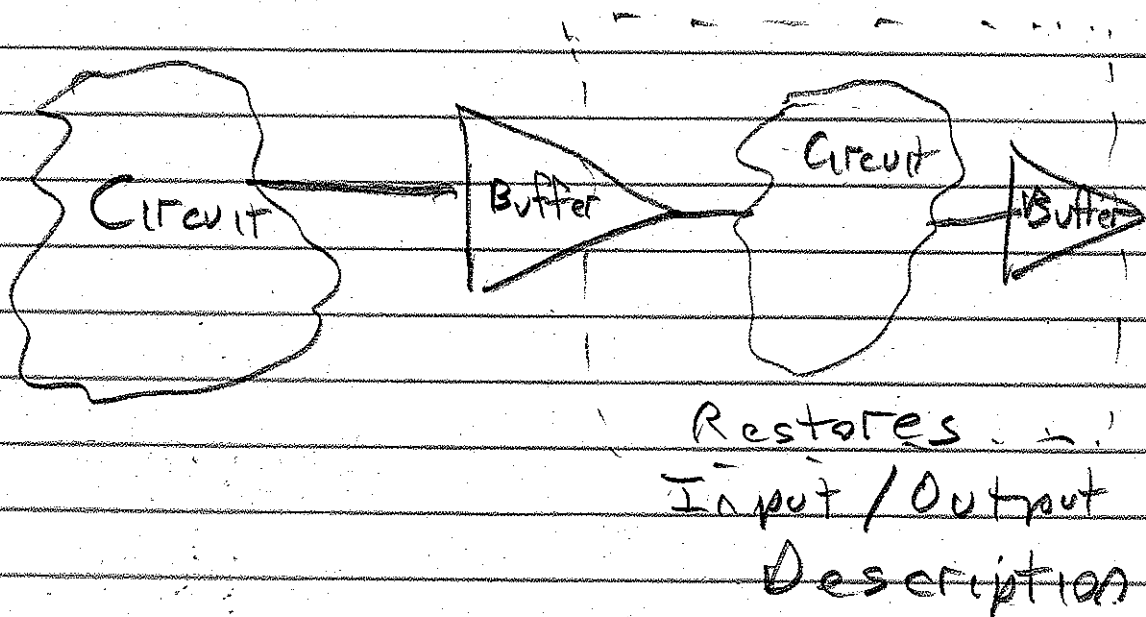 Circuit
Buffer
Circuit
Buffer
Restores
Input / Output
Description